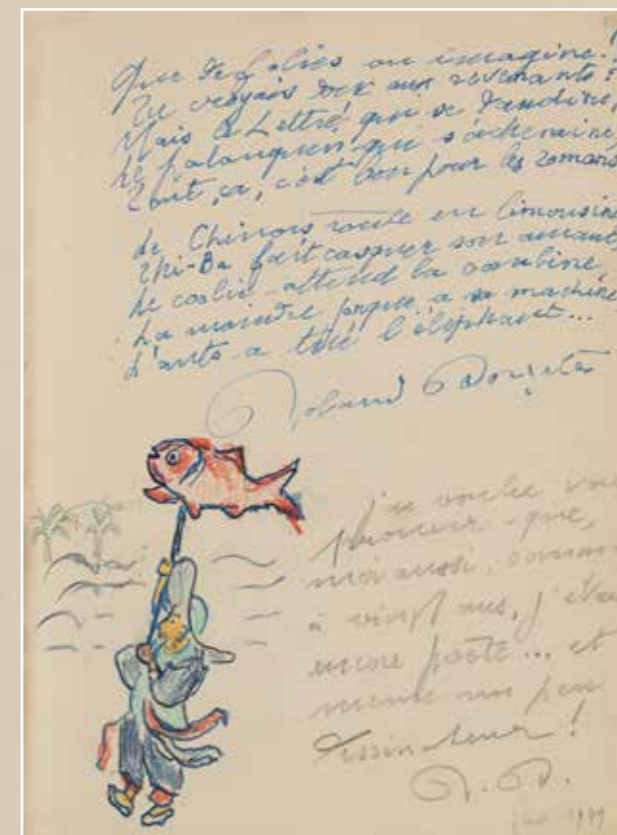 Que de folies on imagine!
Tu croyais donc aux revenants?
Mais le Lettré qui se dandine,
Le palanquin qui s'achemine,
Tout ça, c'est bon pour les romans
Le Chinois roule en limousine
Thi-Ba fait casquer son amant,
Le coolie attend la combine,
La moindre a sa machine
L'auto a tué l'éléphant...
Roland Dorgelès
j'ai voulu vous
prouver que,
moi aussi, comme
à vingt ans, j'étais
encore poète... et
même un peu
dessinateur!
R. D.